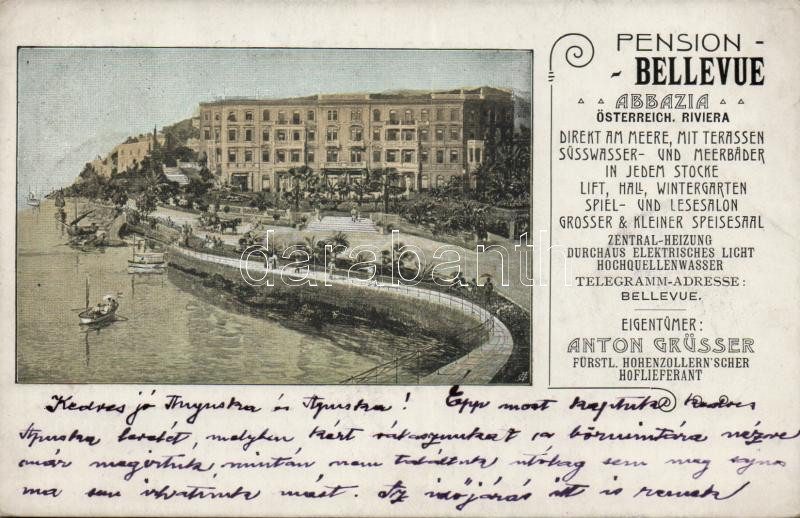 PENSION -
- BELLEVUE
ABBAZIA
ÖSTERREICH. RIVIERA
DIREKT AM MEERE, MIT TERASSEN
SÜSSWASSER- UND MEERBÄDER
IN JEDEM STOCKE
LIFT, HALL, WINTERGARTEN
SPIEL- UND LESESALON
GROSSER & KLEINER SPEISESAAL
ZENTRAL-HEIZUNG
DURCHAUS ELEKTRISCHES LICHT
HOCHQUELLENWASSER
TELEGRAMM-ADRESSE:
BELLEVUE.
EIGENTÜMER:
ANTON GRÜSSER
FÜRSTL. HOHENZOLLERN'SCHER
HOFLIEFERANT
darabanth.com
Kedves jó Anyuska és Apuska! Épp most kaptuk kedves
Apuska levelét, melyben kért válaszunkat a bőrmintára nézve
már megírtuk, mintán nem találtunk utólag sem meg sajnos
ma sem írhatunk mást. Az időjárás itt is remek